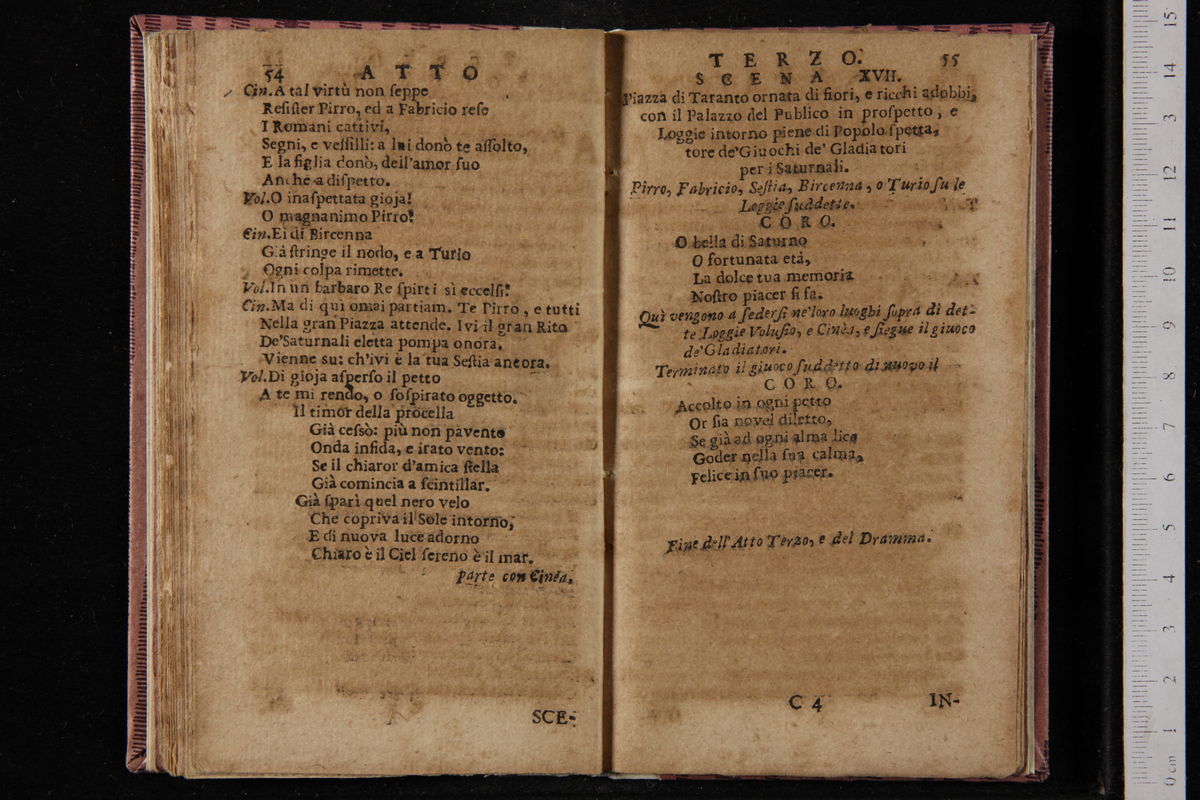 54 ATTO
Cin. A tal virtù non ſeppe
Reſiſter Pirro, ed a Fabricio reſe
I Romani cattivi,
Segni, e veſſilli: a lui donò te aſſolto,
E la figlia donò, dell'amor ſuo
Anche a diſpetto.
Vol. O inaſpettata gioja!
O magnanimo Pirro!
Cin. Ei di Bircenna
Già ſtringe il nodo, e a Turio
Ogni colpa rimette.
Vol. In un barbaro Re ſpirti sì eccelſi!
Cin. Ma di quì omai partiam. Te Pirro, e tutti
Nella gran Piazza attende. Ivi il gran Rito
De'Saturnali eletta pompa onora.
Vienne su: ch'ivi è la tua Seſtia ancora.
Vol. Di gioja aſperſo il petto
A te mi rendo, o ſoſpirato oggetto.
Il timor della procella
Già ceſsò: più non pavento
Onda infida, e irato vento:
Se il chiaror d'amica ſtella
Già comincia a ſcintillar.
Già ſparì quel nero velo
Che copriva il Sole intorno,
E di nuova luce adorno
Chiaro è il Ciel ſereno è il mar.
parte con Cinéa.
SCE-
TERZO. 55
SCENA XVII.
Piazza di Taranto ornata di fiori, e ricchi adobbi,
con il Palazzo del Publico in proſpetto, e
Loggie intorno piene di Popolo ſpetta-
tore de'Giuochi de' Gladiatori
per i Saturnali.
Pirro, Fabricio, Seſtia, Bircenna, o Turio ſu le
Loggie ſuddette.
CORO.
O bella di Saturno
O fortunata età,
La dolce tua memoria
Noſtro piacer ſi fa.
Quì vengono a ſederſi ne'loro luoghi ſopra di det-
te Loggie Voluſio, e Cinèa, e ſiegue il giuoco
de'Gladiatori.
Terminato il giuoco ſuddetto di nuovo il
CORO.
Accolto in ogni petto
Or ſia novel diletto,
Se già ad ogni alma lice
Goder nella ſua calma,
Felice in ſuo piacer.
Fine dell'Atto Terzo, e del Dramma.
C 4 IN-
15
14
3
12
11
10
9
8
7
6
5
4
3
2
1
0 cm